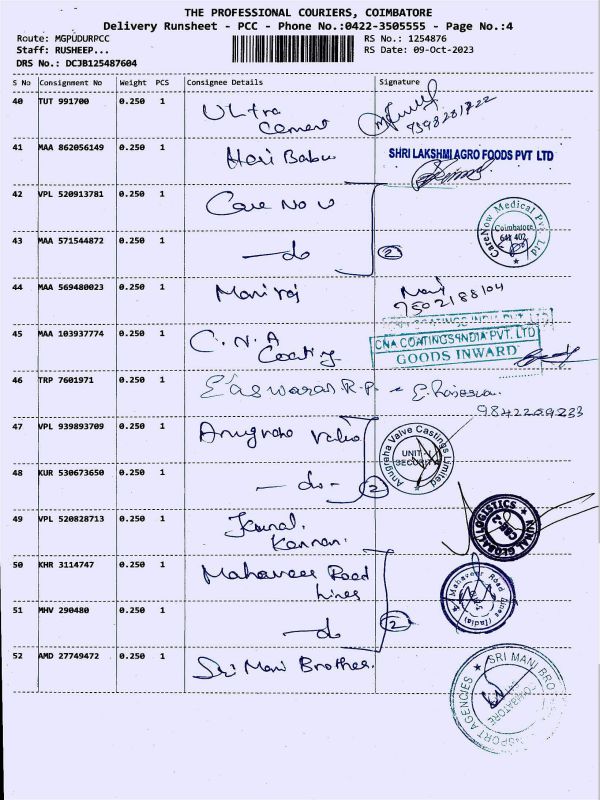 THE PROFESSIONAL COURIERS, COIMBATORE
Delivery Runsheet - PCC - Phone No.:0422-3505555 - Page No.:4
Route: MGPUDURPCC
RS No.: 1254876
Staff: RUSHEEP...
RS Date: 09-Oct-2023
DRS No.: DCJB125487604
S No Consignment No Weight PCS Consignee Details Signature
40 TUT 991700 0.250 1 Ultra
Cement
9398201722
41 MAA 862056149 0.250 1 Hari Babu
SHRI LAKSHMI AGRO FOODS PVT LTD
42 VPL 520913781 0.250 1 Care Now
CareNow Medical Pvt Ltd
Coimbatore
641 402
43 MAA 571544872 0.250 1 —do 2
44 MAA 569480023 0.250 1 Maniraj Mani
9502188104
45 MAA 103937774 0.250 1 C.N.A
Coating
CNA COATINGS INDIA PVT. LTD
GOODS INWARD
46 TRP 7601971 0.250 1 Easwaran R.P.
9842209233
47 VPL 939893709 0.250 1 Anugraha Valve
Anugraha Valve Castings Limited
UNIT-I
SECURITY
48 KUR 530673650 0.250 1 —do- 2
49 VPL 520828713 0.250 1 Kunal
Kannan
KUNAL GLOBAL LOGISTICS
CBE-3
50 KHR 3114747 0.250 1 Mahaveer Road
Lines
Mahaveer Road Lines (India)
51 MHV 290480 0.250 1 —do 2
52 AMD 27749472 0.250 1 Sri Mani Brother.
SRI MANI BRO
NSPORT AGENCIES